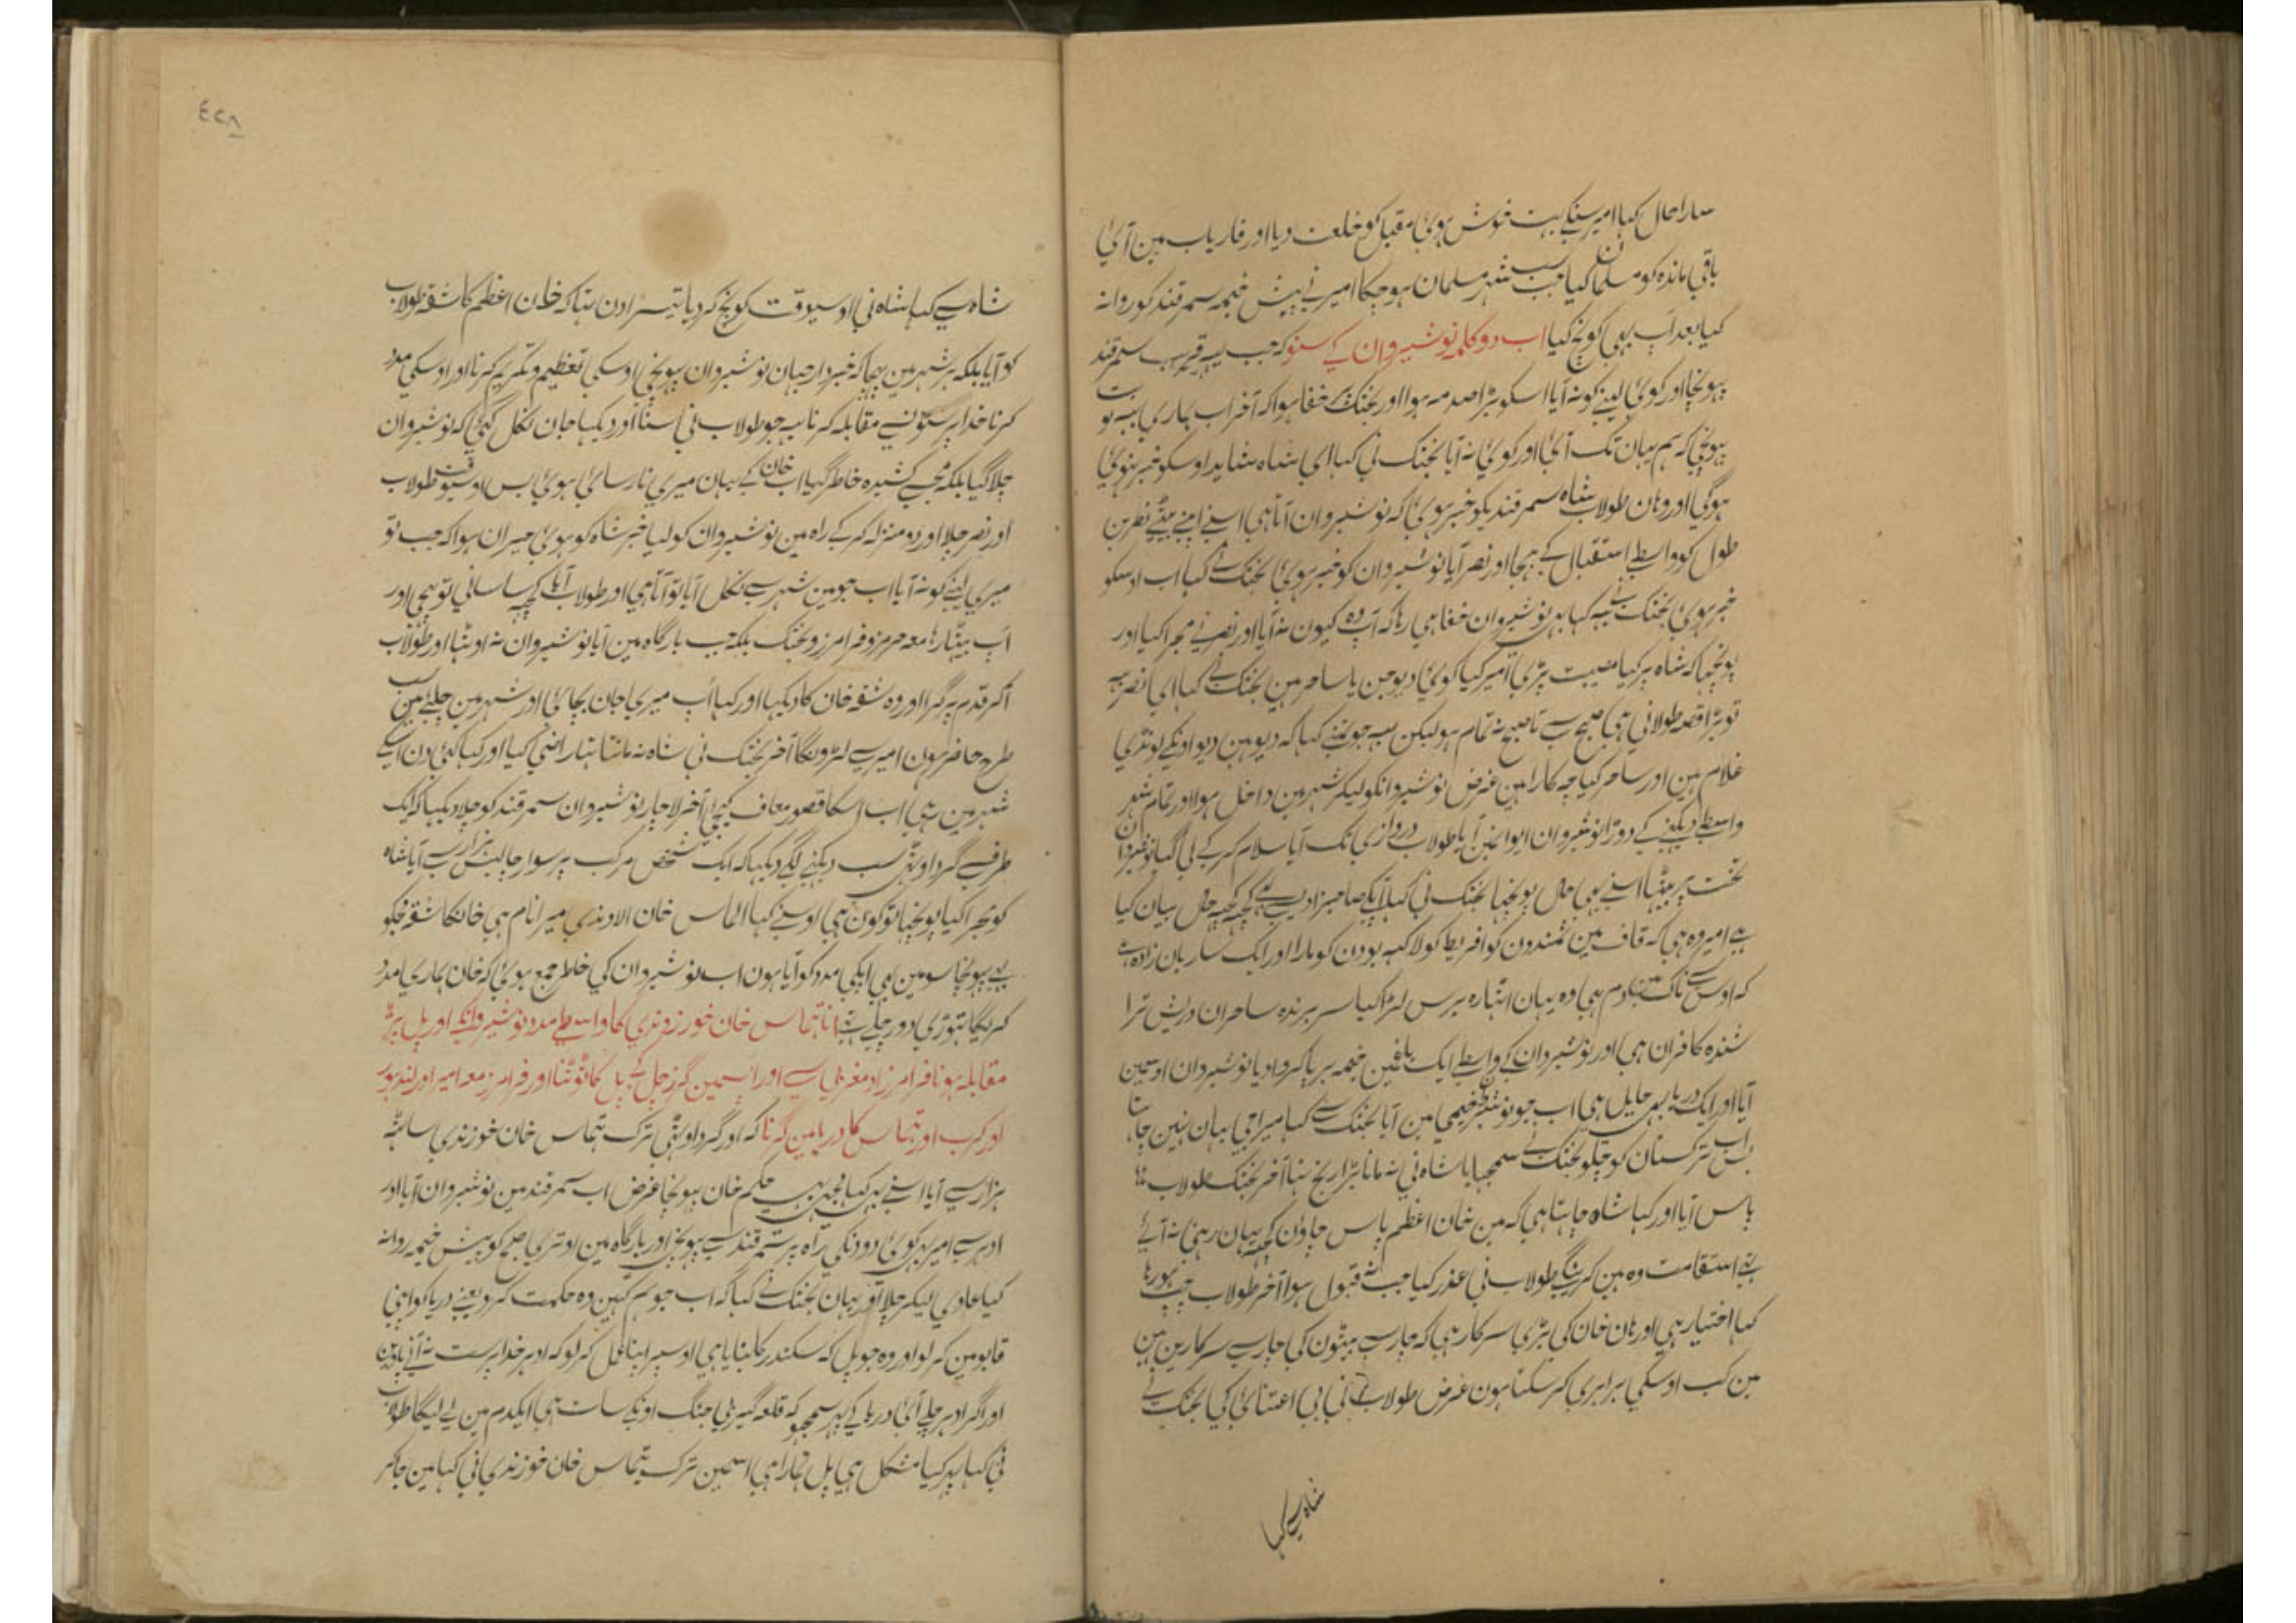 سارا حال کہا امیر سنکے بہت خوش ہوئی مقبل کو خلعت دیا اور فاریاب مین آئی
باقی ماندہ کو مسلمان کیا جب سب شہر مسلمان ہو چکا امیر نے پیش خیمہ سمرقند کو روانہ
کیا بعد آپ بھی کونچ کیا اب دو کلمہ نوشیروان کے سنو کہ جب یہ قریب سمرقند
پہونچا اور کوئی لینے کو نہ آیا اسکو بڑا صدمہ ہوا اور بختک پر خفا ہوا کہ آخر اب ہماری یہ نوبت
پہونچی کہ ہم یہان تک آئی اور کوئی نہ آیا بختک نی کہا ای شاہ شاید اوسکو خبر نہوئی
ہوگی اور وہان طولاب شاہ سمرقندیکو خبر ہوئی کہ نوشیروان آتا ہی اسنے اپنے بیٹے نصر بن
طول کو واسطے استقبال کے بھیجا اور نصر آیا نوشیروان کو خبر ہوئی بختک نے کہا اب اوسکو
خبر ہوئی بختک نے یہ کہا پر نوشیروان خفا ہی رہا کہ آپ وہ کیون نہ آیا اور نصر نے مجرا کیا اور
پونچھا کہ شاہ پر کیا مصیبت پڑی امیر کیا کوئی دیو جن یا ساحر ہین بختک نے کہا ای نصر یہ
تو بڑا قصہ طولانی ہی صبح سے تا صبح نہ تمام ہو لیکن یہ جو تمنے کہا کہ دیو ہین دیو اونکے لونڈی
غلام ہین اور ساحر کیا چہ کارا ہین غرض نوشیروانکو لیکر شہر مین داخل ہوا اور تمام شہر
واسطے دیکھنے کے دوڑا نوشیروان ایوانمین آیا طولاب دروازی تک آیا سلام کر کے لی گیا نوشیروان
تخت پر بیٹھا اسنے بھی حال پونچھا بختک نی کہا آپکے صاحبزادیسے کچھ کچھ حال بیان کیا
ہے امیر وہ ہی کہ قاف مین سمندون کو افریط کو لاکہہ بودن کو مارا اور ایک ساربان زادہ ہے
کہ اوس سے ناک مین دم ہی وہ یہان اٹھارہ برس لڑا کیا سر برندہ ساحران و ریش ترا
شندہ کافران ہی اور نوشیروان کے واسطے ایک باغمین خیمہ برپا کروا دیا نوشیروان اوسمین
آیا اور ایک دریا بھی حایل ہی اب جو نوشیروان خیمی مین آیا بختک سے کہا میرا جی یہان نہین چاہتا
بس اب ترکستان کو چلو بختک نے سمجھایا شاہ نی نہ مانا بڑا رنج تھا آخر بختک طولاب شاہ
پاس آیا اور کہا شاہ چاہتا ہی کہ مین خان اعظم پاس جاؤن کچھ یہان رہنی نہ آئے
تھے استقامت وہ مین کرینگے طولاب نی عذر کیا جب نہ قبول ہوا آخر طولاب چپ ہورہا
کہا اختیار ہی اور ہان خان کی بڑی سرکار ہی کہ چارسے بیٹون کی چارسے سرکارین ہین
مین کب اوسکی برابری کر سکتا ہون غرض طولاب نی بی اعتنائی کی بختک نے
شاہ سے کہا
٤٢٨
شاہ سے کہا شاہ نی اوسیوقت کونچ کر دیا تیسرا دن تھا کہ خان اعظم کا شقہ طولاب
کو آیا بلکہ ہر شہر مین بھیجا کہ خبردار جہان نوشیروان پہونچی اوسکی تعظیم و تکریم کرنا اور اوسکی مدد
کرنا خدا پرستونسے مقابلہ کرنا یہ جو طولاب نی سنا اور دیکھا جان نکل گئی کہ نوشیروان
چلا گیا بلکہ مجسے کشیدہ خاطر گیا اب خان کے یہان میری نارسائی ہوئی بس اوسیوقت طولاب
اور نصر چلا اور دو منزلہ کر کے راہ مین نوشیروان کو لیا خبر شاہ کو ہوئی حیران ہوا کہ جب تو
میری لینے کو نہ آیا اب جو مین شہر سے نکل آیا تو آتا ہی اور طولاب آیا کچھ ساسانی تو بھیجی اور
آپ بیٹھا رہا معہ ہرمز و فرامرز و بختک بلکہ جب بارگاہ مین آیا نوشیروان نہ اوٹھا اور طولاب
آکر قدم پر گرا اور وہ شقہ خان کا دیکھا اور کہا آپ میری جان بچائی اور شہر مین چلئے مین سب
طرح حاضر ہون امیر سے لڑونگا آخر بختک نی شاہ نہ مانتا تھا راضی کیا اور کہا کئی دن اسکے
شہر مین رہی اب اسکا قصور معاف کیجی آخر لاچار نوشیروان سمرقند کو چلا دیکھا کہ ایک
طرف سے گرد اوٹھی سب دیکھنے لگے دیکھا کہ ایک شخص مرکب پر سوار چالیس ہزار سے آیا شاہ
کو مجرا کیا پونچھا تو کون ہی اوسنے کہا الماس خان الاوندی میرا نام ہی خانکا شقہ مجکو
بھی پہونچا سو مین بھی آپکی مدد کو آیا ہون اب نوشیروان کی خاطر جمع ہوئی کہ خان ہماری مدد
کریگا تھوڑی دور چلے تھے آنا تماس خان خوزندی کا واسطے مدد نوشیروانکے اور پل پر
مقابلہ ہونا فرامرز اد مغربی سے اور اسمین گرز چل کے پل کا ٹوٹنا اور فرامرز معہ امیر اور لندہور
اور کرب اور تماس کا دریا مین گرنا کہ اور گرد اوٹھی ترک تماس خان خوزندی ساٹھ
ہزار سے آیا اسنے بھی کہا مجھے بھی حکم خان پہونچا غرض اب سمرقند مین نوشیروان آیا اور
ادہر سے امیر بھی کوئی دو دنکی راہ پر سمرقند سے پہونچی اور بارگاہ مین اوتری صبح کو پیش خیمہ روانہ
کیا عادی لیکر چلا اور یہان بختک نے کہا کہ اب جو ہم کہین وہ حکمت کرو یعنے دریا کو اپنی
قابو مین کر لو اور وہ جو پل کہ سکندر کا بنایا ہی اوسپر اپنا عمل کر لو کہ ادہر خدا پرست نہ آنی پاوین
اور اگر ادہر چلے آئی دریا کے پھر سمجھو کہ قلعہ گیری جنگ اونکے سات ہی ایکدم مین لے لیگا طولاب
نی کہا پھر کیا مشکل ہی پل ہمارا ہی اسمین ترک تماس خان خوزندی نی کہا مین جاکر